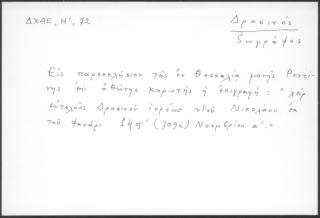 ΔΧΑΕ, Η', 72
Δροσινός
ζωγράφος
Εἰς παρεκκλήσιον τῆς ἐν Θεσσαλίᾳ μονῆς Ρεντί
νης ἐπὶ ὀθόνης κηρωτῆς ἡ ἐπιγραφή: "χεὶρ
εὐτελοῦς Δροσινοῦ ἱερέως υἱοῦ Νικολάου ἐκ
τοῦ φανάρι (1096) Νοεμβρίου α'."